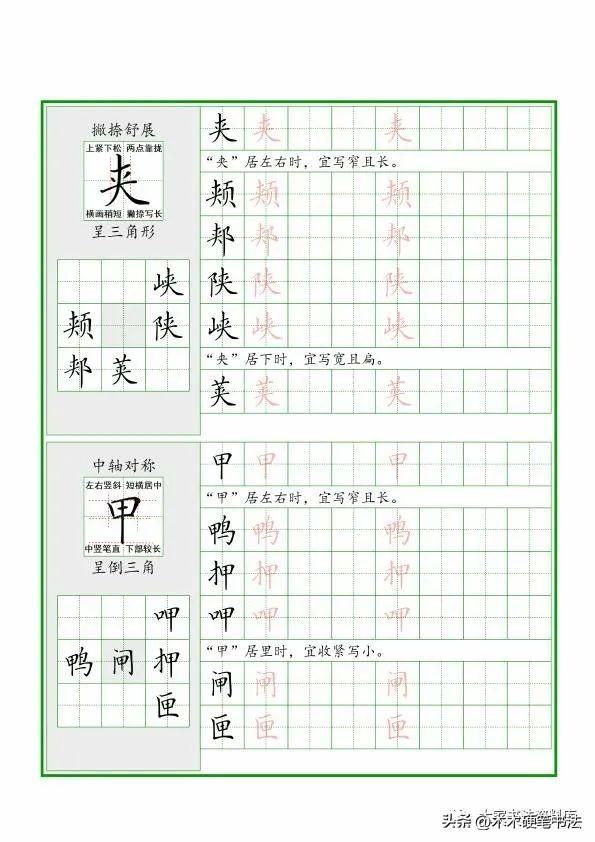 撇捺舒展
上紧下松 两点靠拢
夹
横画稍短 撇捺写长
呈三角形
峡
颊 陕
郏 荚
夹 夹 夹
“夹”居左右时，宜写窄且长。
颊 颊 颊
郏 郏 郏
陕 陕 陕
峡 峡 峡
“夹”居下时，宜写宽且扁。
荚 荚 荚
中轴对称
左右竖斜 短横居中
甲
中竖笔直 下部较长
呈倒三角
呷
鸭 闸 押
匣
甲 甲 甲
“甲”居左右时，宜写窄且长。
鸭 鸭 鸭
押 押 押
呷 呷 呷
“甲”居里时，宜收紧写小。
闸 闸 闸
匣 匣 匣
头条 @木木硬笔书法